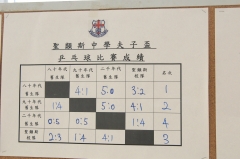 聖類斯中學夫子盃
乒乓球比賽成績
八十年代舊生隊 九十年代舊生隊 二十年代舊生隊 聖類斯校隊 名次
八十年代舊生隊 4:1 5:0 3:2 1
九十年代舊生隊 1:4 5:0 1:4 3
二十年代舊生隊 0:5 0:5 1:4 4
聖類斯校隊 2:3 4:1 4:1 2